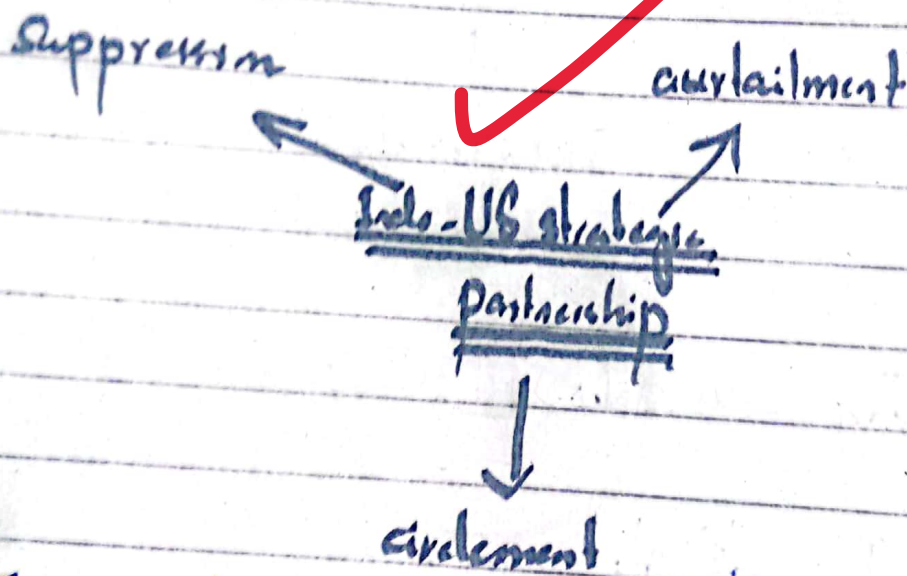 Suppression
curtailment
Indo-US strategic
Partnership
circlement